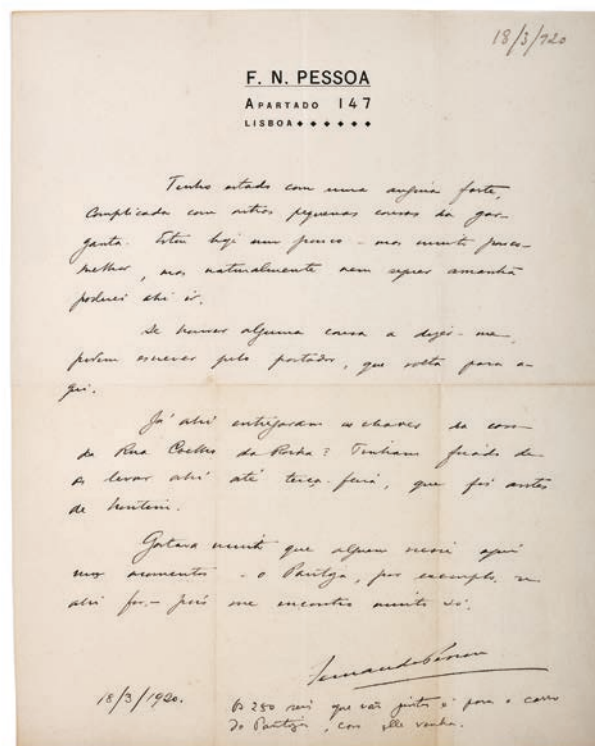 18/3/920
F. N. PESSOA
APARTADO 147
LISBOA
Tenho estado com uma angina forte,
complicada com outras pequenas cousas da gar-
ganta. Estou hoje um pouco - mas muito pouco -
melhor, mas naturalmente nem sequer amanhã
poderei ahi ir.
Se houver alguma cousa a dizer-me,
podem escrever pelo portador, que volta para a-
qui.
Já ahi entregaram as chaves da casa
da Rua Coelho da Rocha? Tinham ficado de
as levar ahi até terça-feira, que foi antes
de hontem.
Gostava muito que alguem viesse aqui
uns momentos - o Pantoja, por exemplo, se
ahi fôr - pois me encontro muito só.
Fernando Pessoa
18/3/1920.
Os 280 reis que vão juntos é para o carro
do Pantoja, caso elle venha.